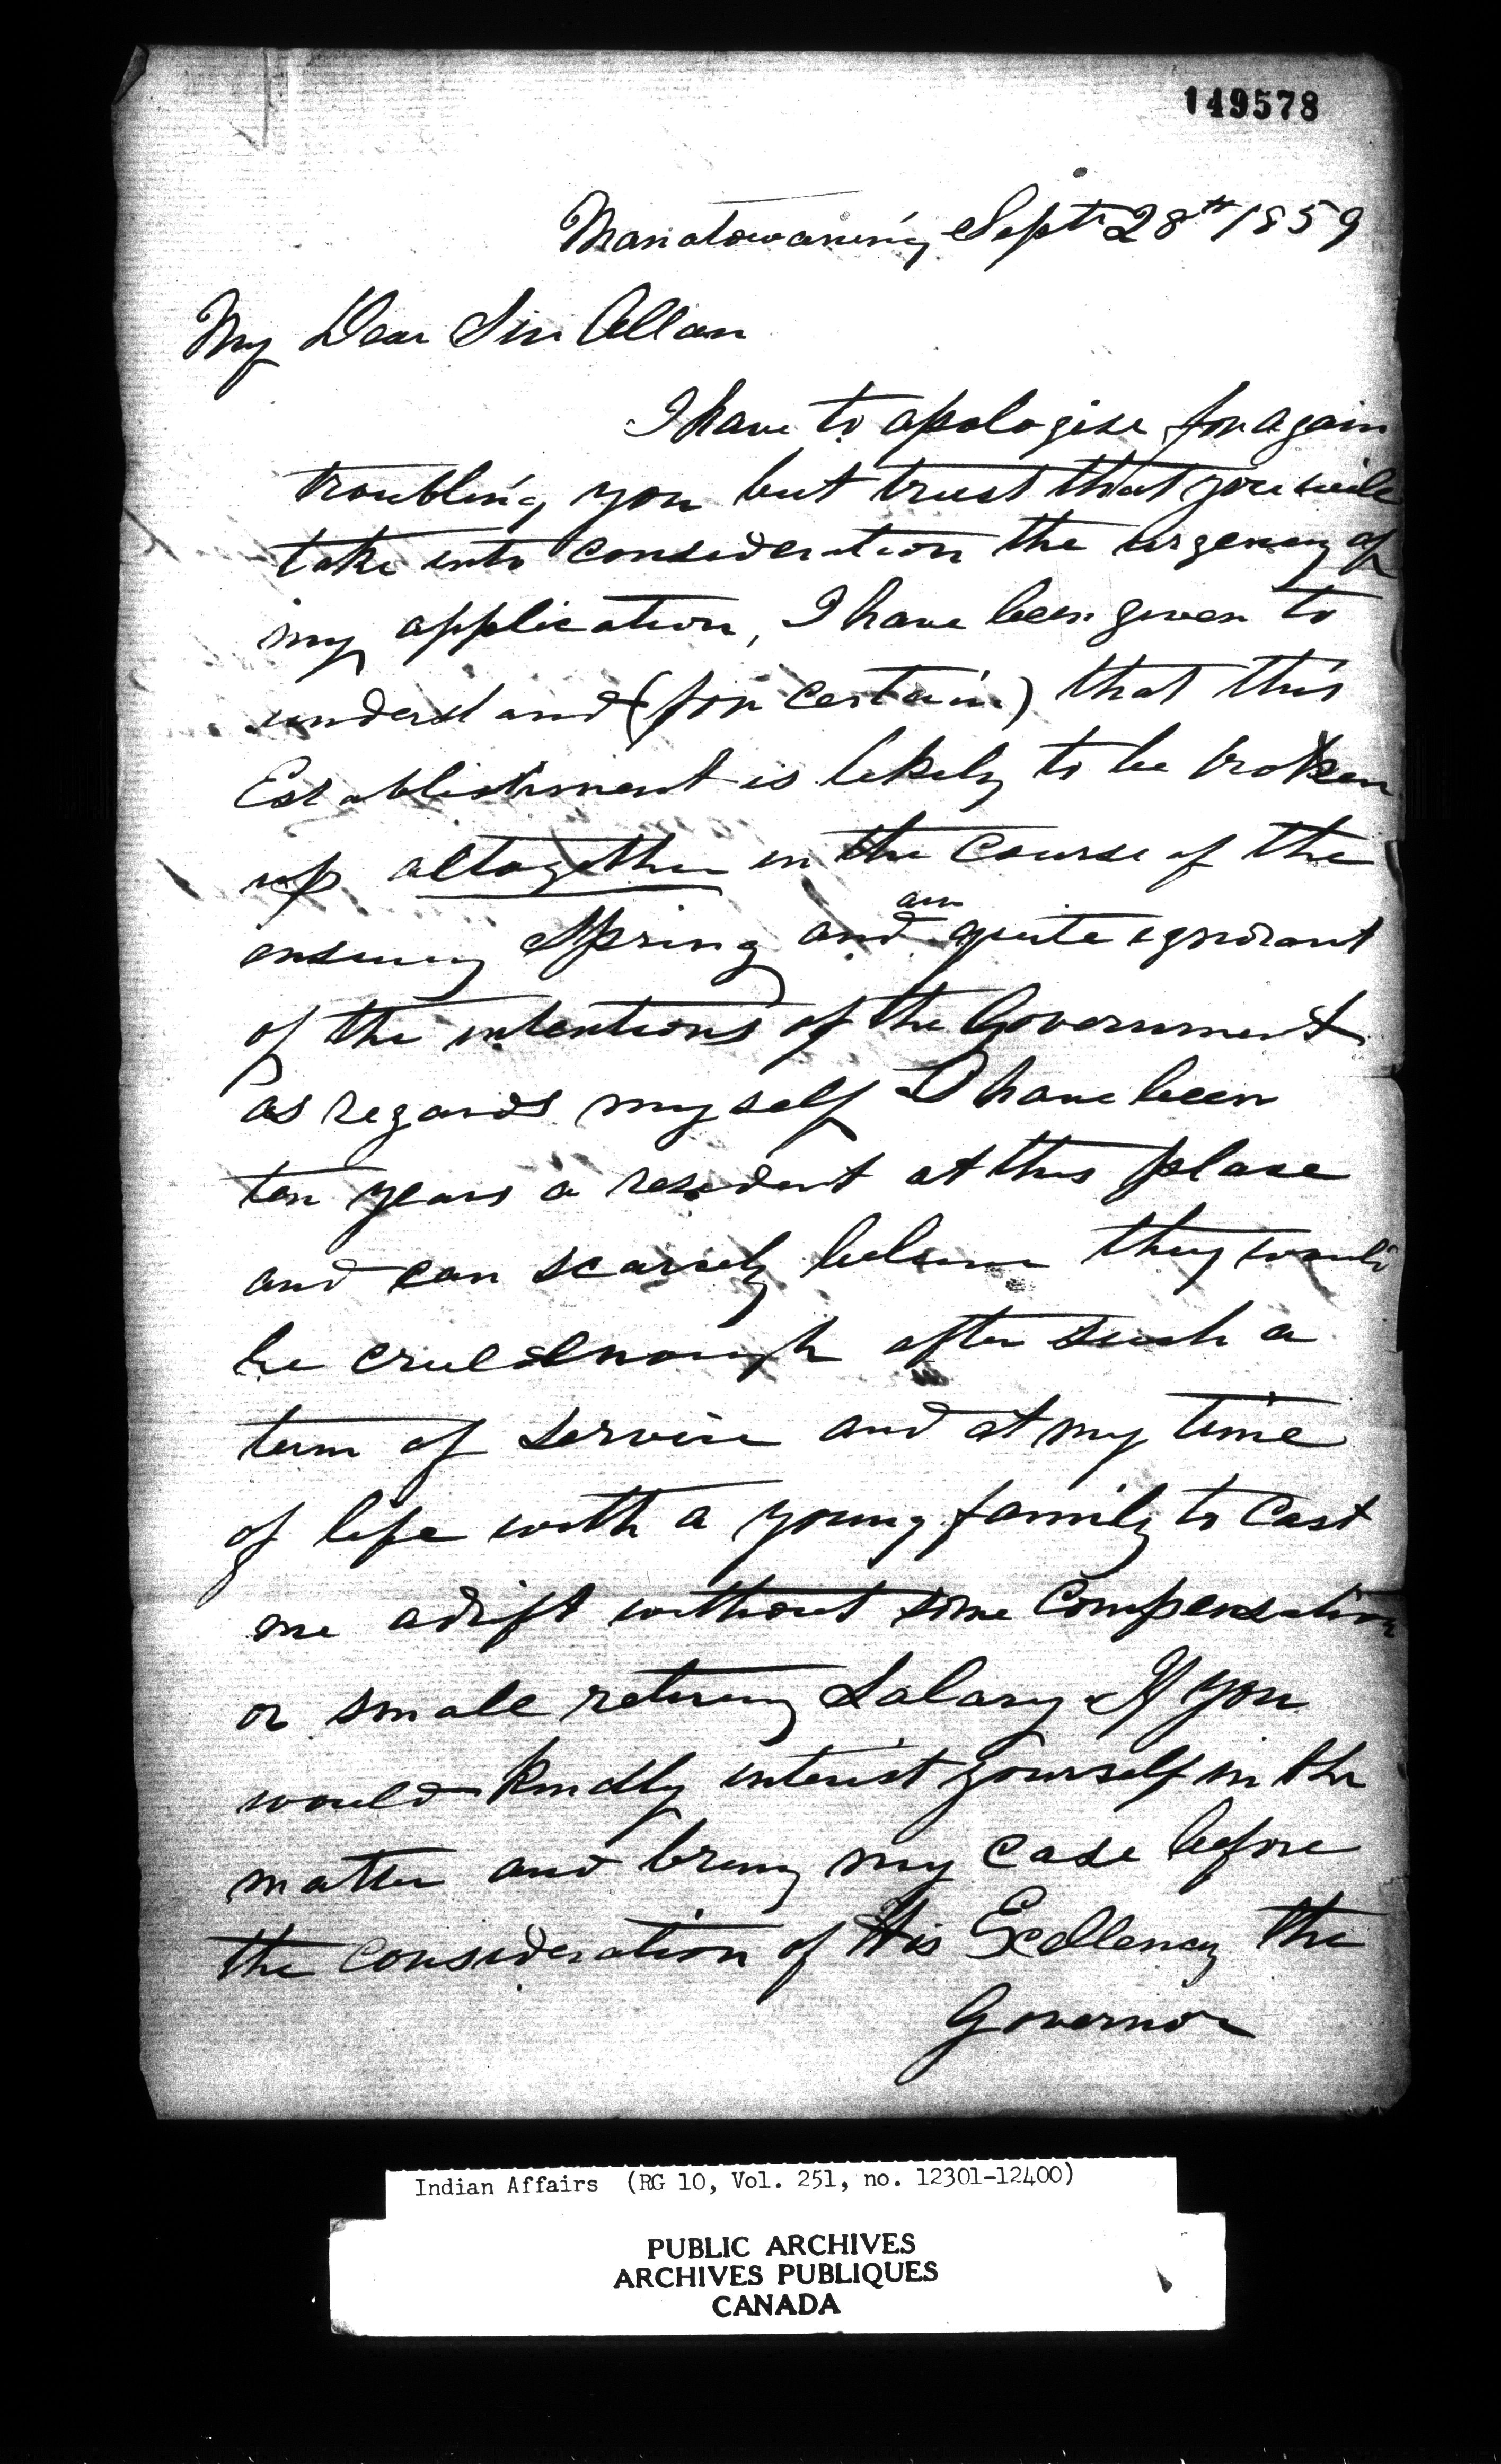 149578
Manatowaning Sept 28th 1859
My Dear Sir Allan
I have to apologise for again
troubling you but trust that you will
take into consideration the urgency of
my application, I have been given to
understand (for certain) that this
Establishment is likely to be broken
up altogether in the course of the
am
ensuing Spring and quite ignorant
of the intentions of the Government
as regards myself I have been
ten years a resident at this place
and can scarcely believe they would
be cruel enough after such a
term of service and at my time
of life with a young family to Cast
me adrift without some Compensation
or small retiring Salary If you
would kindly interest yourself in the
matter and bring my case before
the consideration of His Excellency the
Governor
Indian Affairs (RG 10, Vol. 251, no. 12301-12400)
PUBLIC ARCHIVES
ARCHIVES PUBLIQUES
CANADA